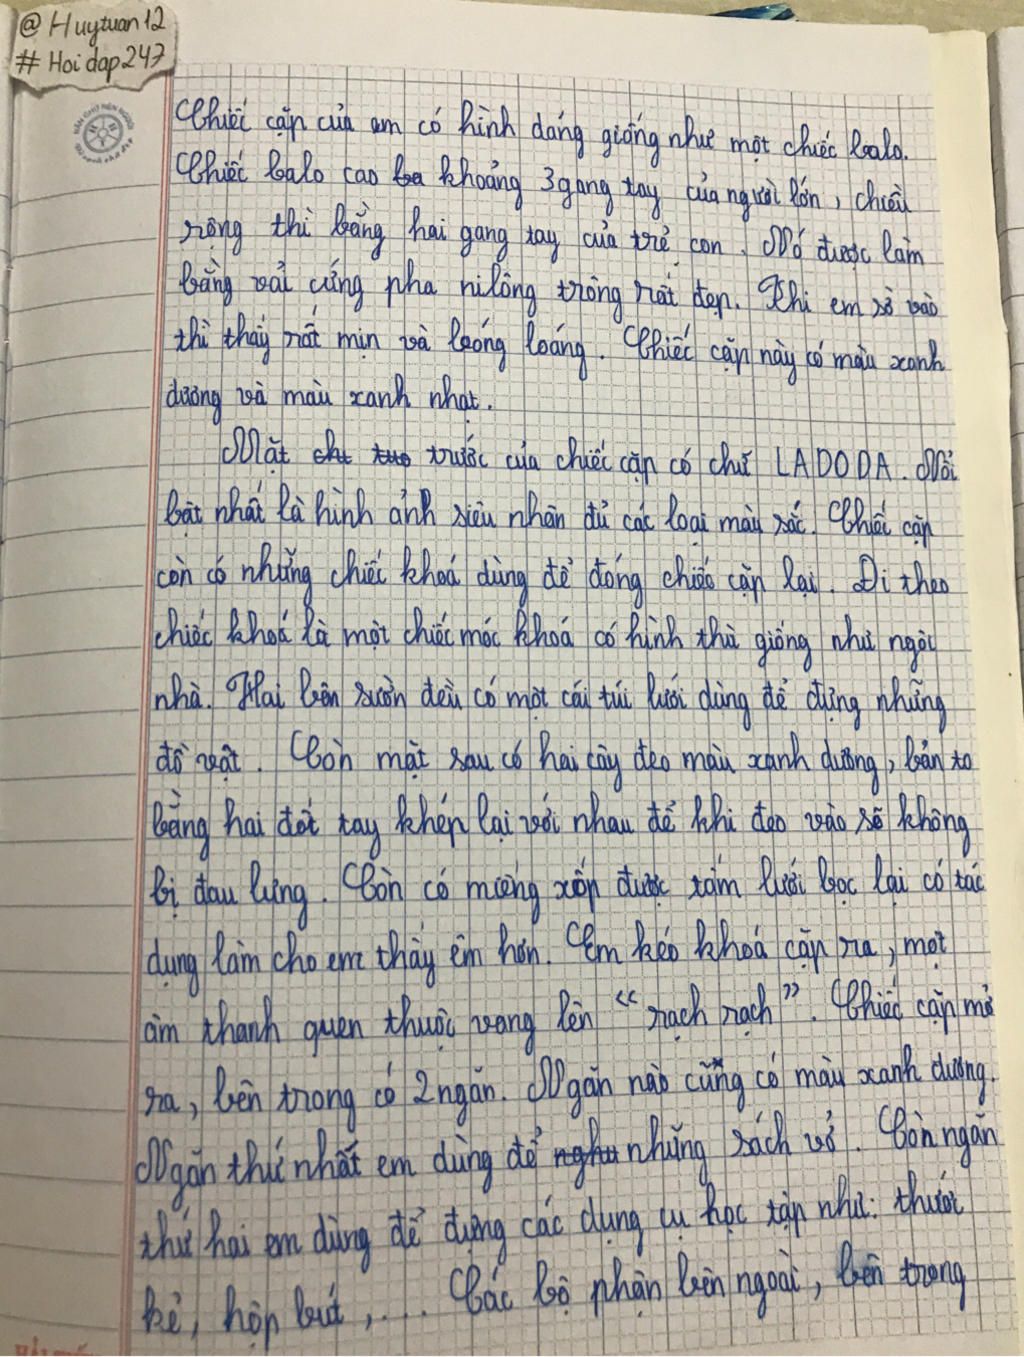 @Huytuan12
#Hoidap247
Chiếc cặp của em có hình dáng giống như một chiếc balo.
Chiếc balo cao ba khoảng 3 gang tay của người lớn, chiều
rộng thì bằng hai gang tay của trẻ con. Nó được làm
bằng vải cứng pha nilông trông rất đẹp. Khi em sờ vào
thì thấy rất mịn và boóng loáng. Chiếc cặp này có màu xanh
dương và màu xanh nhạt.
Mặt chi tuo trước của chiếc cặp có chữ LADODA. Nổi
bật nhất là hình ảnh siêu nhân đủ các loại màu sắc. Chiếc cặp
còn có những chiếc khoá dùng để đóng chiếc cặp lại. Đi theo
chiếc khoá là một chiếc móc khoá có hình thù giống như ngôi
nhà. Hai bên sườn đều có một cái túi lưới dùng để đựng những
đồ vật. Còn mặt sau có hai cây đeo màu xanh dương, bản to
bằng hai đốt tay khép lại với nhau để khi đeo vào sẽ không
bị đau lưng. Còn có miếng xốp được tấm lưới bọc lại có tác
dụng làm cho em thấy êm hơn. Em kéo khoá cặp ra, một
âm thanh quen thuộc vang lên "rạch rạch". Chiếc cặp mở
ra, bên trong có 2 ngăn. Ngăn nào cũng có màu xanh dương.
Ngăn thứ nhất em dùng để những sách vở. Còn ngăn
thứ hai em dùng để đựng các dụng cụ học tập như: thước
kẻ, hộp bút,.... Các bộ phận bên ngoài, bên trong